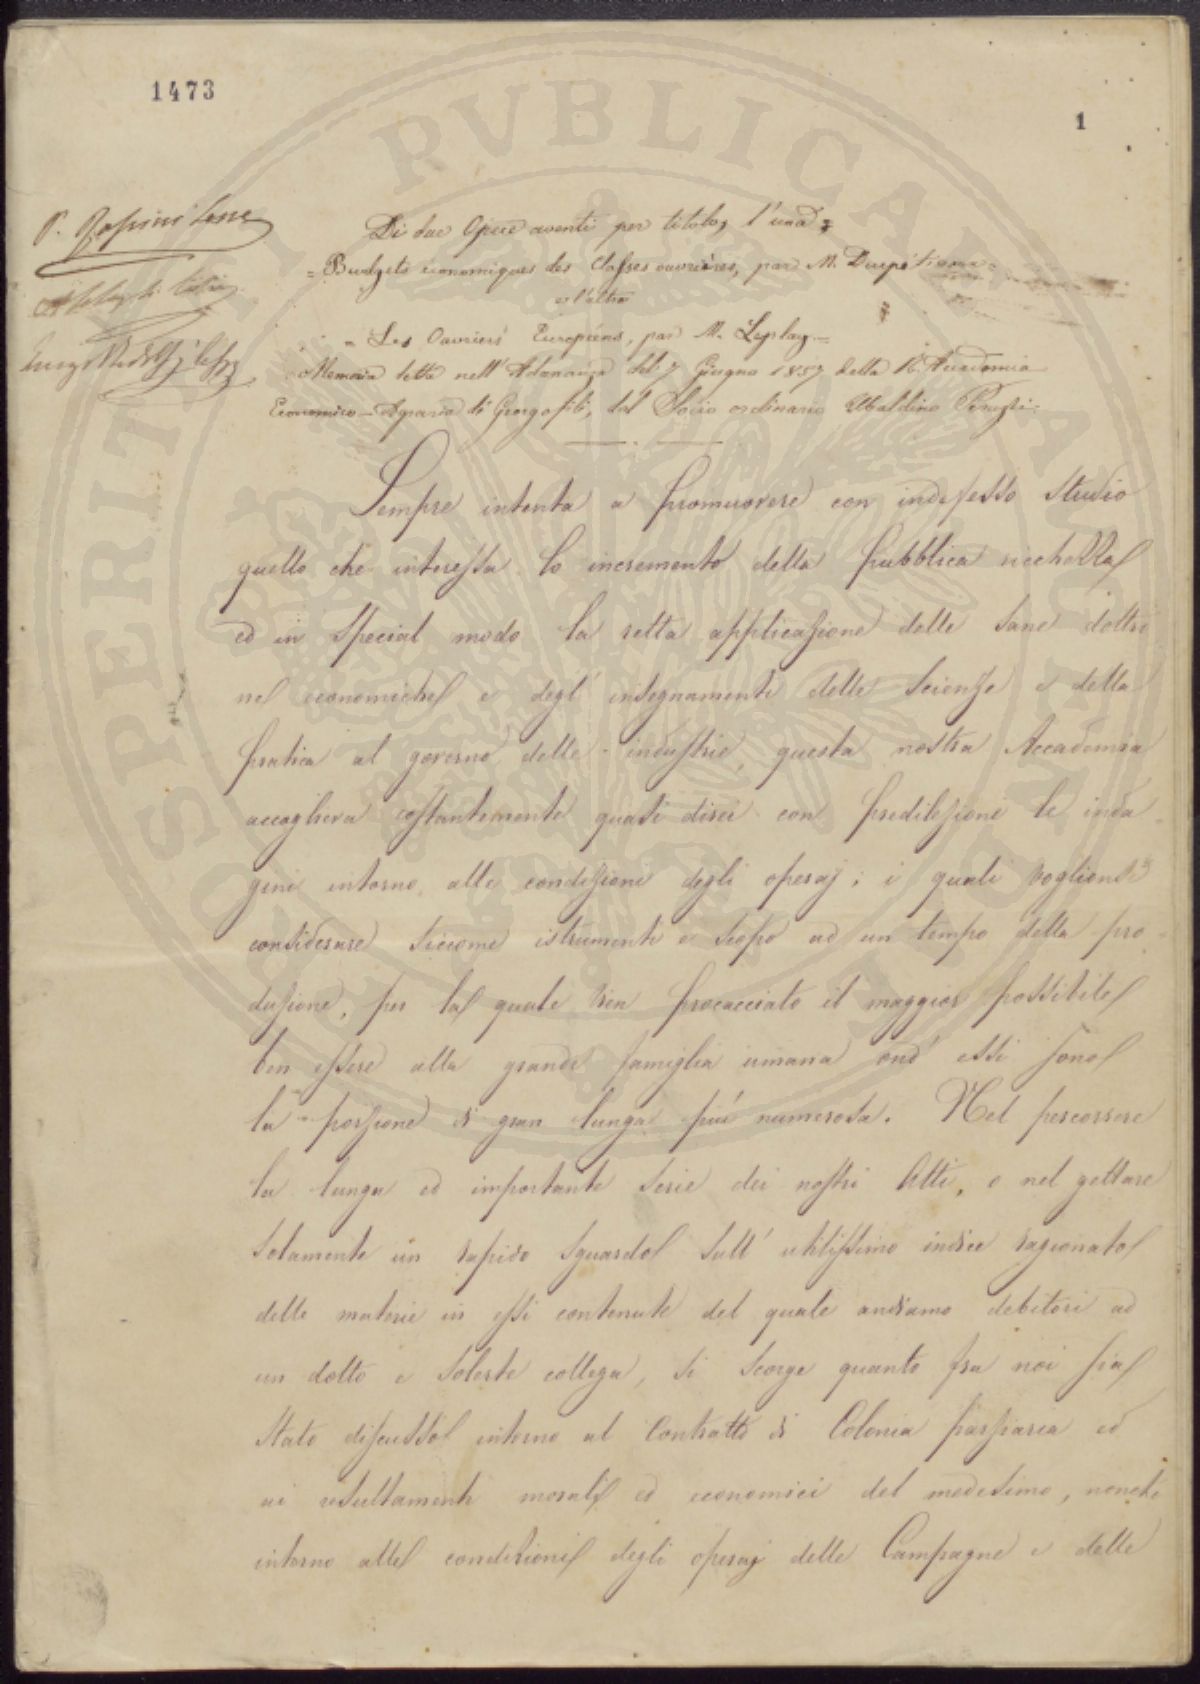 1473
1
Di due Opere aventi per titolo, l'una
= Budgets économiques des Classes ouvrières, par M. Ducpétiaux =
e l'altra
= Les Ouvriers Européens, par M. Leplay. =
Memoria letta nell'Adunanza del 7 Giugno 1857 della R. Accademia
Economico-Agraria di Georgofili, dal Socio ordinario Ubaldino Peruzzi.
Sempre intenta a promuovere con indefesso studio
quello che interessa lo incremento della pubblica ricchezza
ed in special modo la retta applicazione delle sane dottri
ne economiche e degl'insegnamenti delle scienze e della
pratica al governo delle industrie, questa nostra Accademia
accoglieva costantemente quasi direi con predilezione le inda-
gini intorno alle condizioni degli operaj; i quali voglionsi
considerare siccome istrumenti e scopo ad un tempo della pro-
duzione, per la quale vien procacciato il maggior possibile
ben essere alla grande famiglia umana ond'essi sono
la porzione di gran lunga più numerosa. Nel percorrere
la lunga ed importante serie dei nostri Atti, e nel gettare
solamente un rapido sguardo sull'utilissimo indice ragionato
delle materie in essi contenute del quale andiamo debitori ad
un dotto e solerte collega, si scorge quanto fra noi sia
stato discusso intorno al Contratto di Colonia parziaria ed
ai resultamenti morali ed economici del medesimo, nonchè
intorno alle condizioni degli operaj delle Campagne e delle
PVBLICAE
PROSPERITATI